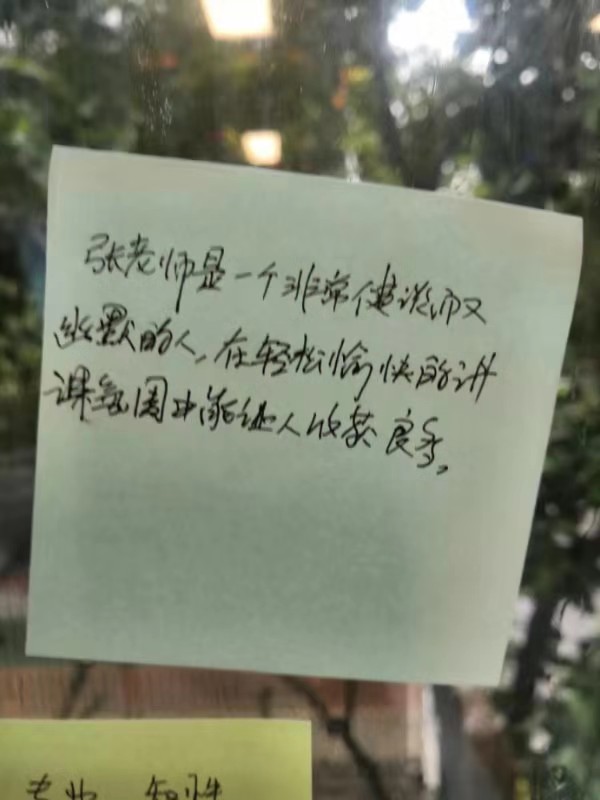 张老师是一个非常健谈而又
幽默的人,在轻松愉快的讲
课氛围中能让人收获良多。
专业 知性